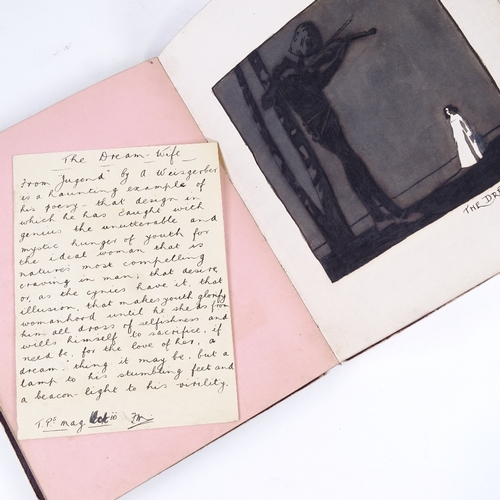 The Dream-Wife
From "Jugend" by A Weisgerber
is a haunting example of
his poesy - that design in
which he has caught with
genius the unutterable and
mystic hunger of youth for
the ideal woman that is
nature's most compelling
craving in man; that desire
or, as the cynics have it, that
illusion, that makes youth glorify
womanhood until he she as from
him all dross of selfishness and
wills himself to sacrifice, if
need be, for the love of her, a
dream - thing it may be, but a
lamp to his stumbling feet and
a beacon-light to his virility.
T.P.s mag
THE DRE